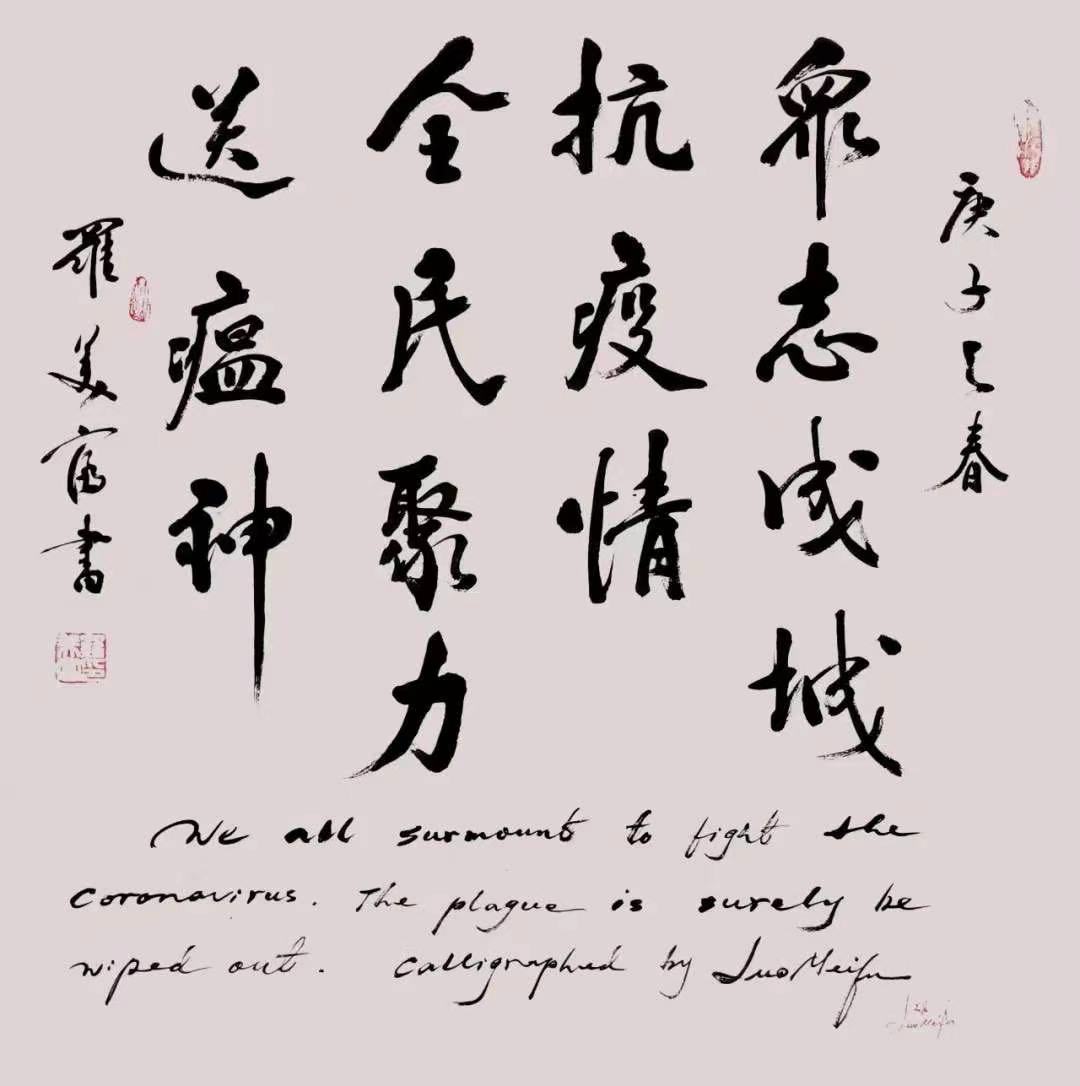 庚子之春
眾志成城
抗疫情
全民聚力
送瘟神
羅美富書
We all surmount to fight the
coronavirus. The plague is surely be
wiped out. Calligraphed by LuoMeifu